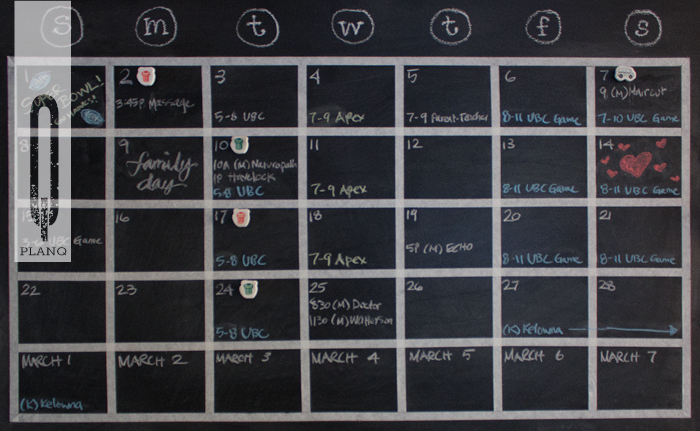 S M T W T F S
1
SUPER BOWL!
2
3:45P Massage
3
5-8 UBC
4
7-9 Apex
5
7-9 Parent-Teacher
6
8-11 UBC Game
7
9 (M) Haircut
7-10 UBC Game
8
9
family
day
10
10A (M) Naturopath
1P
5-8 UBC
11
7-9 Apex
12
13
8-11 UBC Game
14
8-11 UBC Game
15
UBC Game
16
17
5-8 UBC
18
7-9 Apex
19
5P (M) ECHO
20
8-11 UBC Game
21
8-11 UBC Game
22
23
24
5-8 UBC
25
830 (M) Doctor
1130 (M)
26
27
(K) Kelowna
28
MARCH 1
(K) Kelowna
MARCH 2
MARCH 3
MARCH 4
MARCH 5
MARCH 6
MARCH 7
PLANQ